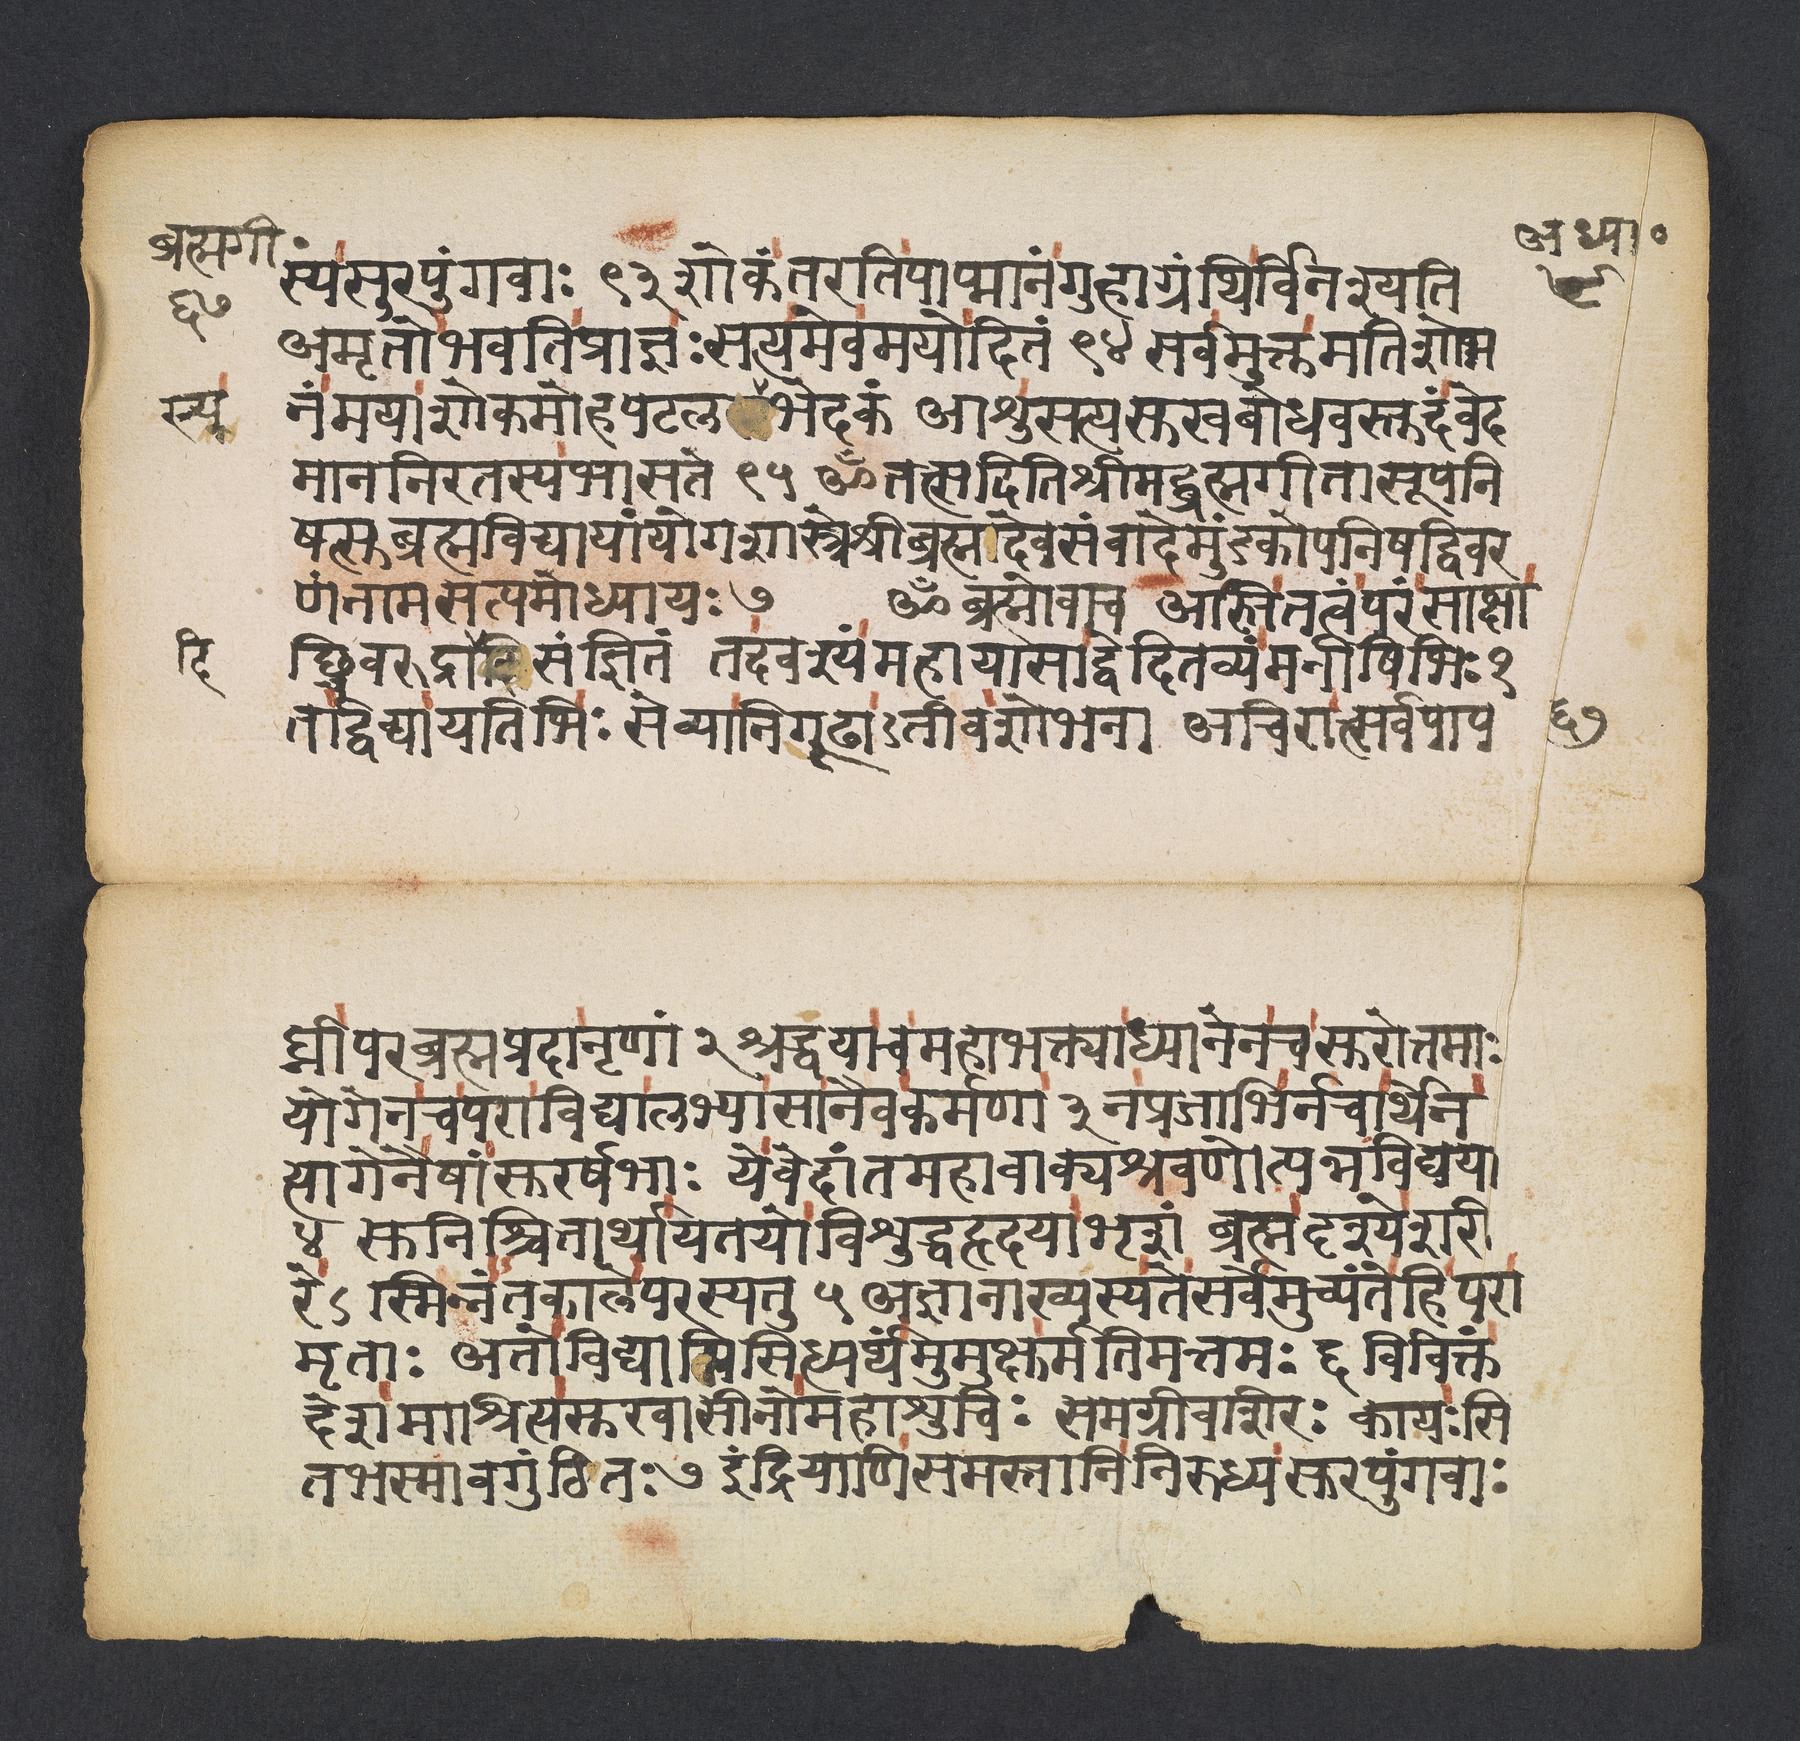 ब्रह्मगी
६७
अध्या०
स्यसुरपुंगवाः ९३ शोकंतरतिपाप्मानंगुहाग्रंथिर्विनश्यति
अमृतोभवतिप्राज्ञःसत्यमेवमयोदितं ९४ सर्वमुक्तमतिशोभ
नंमयाशोकमोहपटलभेदकं आशुसत्यसुखबोधवस्तुदंवेद
स्य
माननिरतस्यभासते ९५ ॐतत्सदितिश्रीमद्ब्रह्मगीतासूपनि
षत्सुब्रह्मविद्यायांयोगशास्त्रेश्रीब्रह्मदेवसंवादेमुंडकोपनिषद्विवर
णंनामसप्तमोध्यायः ७ ॐ ब्रह्मोवाच अस्तितत्वंपरंसाक्षा
दि
च्छिवरुद्रादिसंज्ञितं तदवश्यंमहायासाद्वेदितव्यंमनीषिभिः १
ताद्विद्यायतिभिः सेव्यानिगूढाऽतीवशोभना अचिरात्सर्वपाप
६७
घ्नीपरब्रह्मप्रदानृणां २ श्रद्धयाचमहाभक्त्याध्यानेनचसुरोत्तमाः
योगेनचपराविद्यालभ्यासानैवकर्मणा ३ नप्रजाभिर्नचार्थेन
त्यागेनैषांसुरर्षभाः येवेदांतमहावाक्यश्रवणोत्पन्नविद्यया
४ सुनिश्चितार्थायतयोविशुद्धहृदयाभृशं ब्रह्मदृश्येशरी
रेऽस्मिन्नंतकालेपरस्यतु ५ अज्ञानाख्यस्यतेसर्वेमुच्यंतेहिपरा
मृताः अतोविद्याप्तिसिध्यर्थ्यंमुमुक्षुर्मतिमत्तमः ६ विविक्तं
देशमाश्रित्यसुखासीनोमहाशुचिः समग्रीवाशिरः कायःसि
तभस्मावगुंठितः ७ इंद्रियाणिसमस्तानिनिरुध्यसुरपुंगवाः